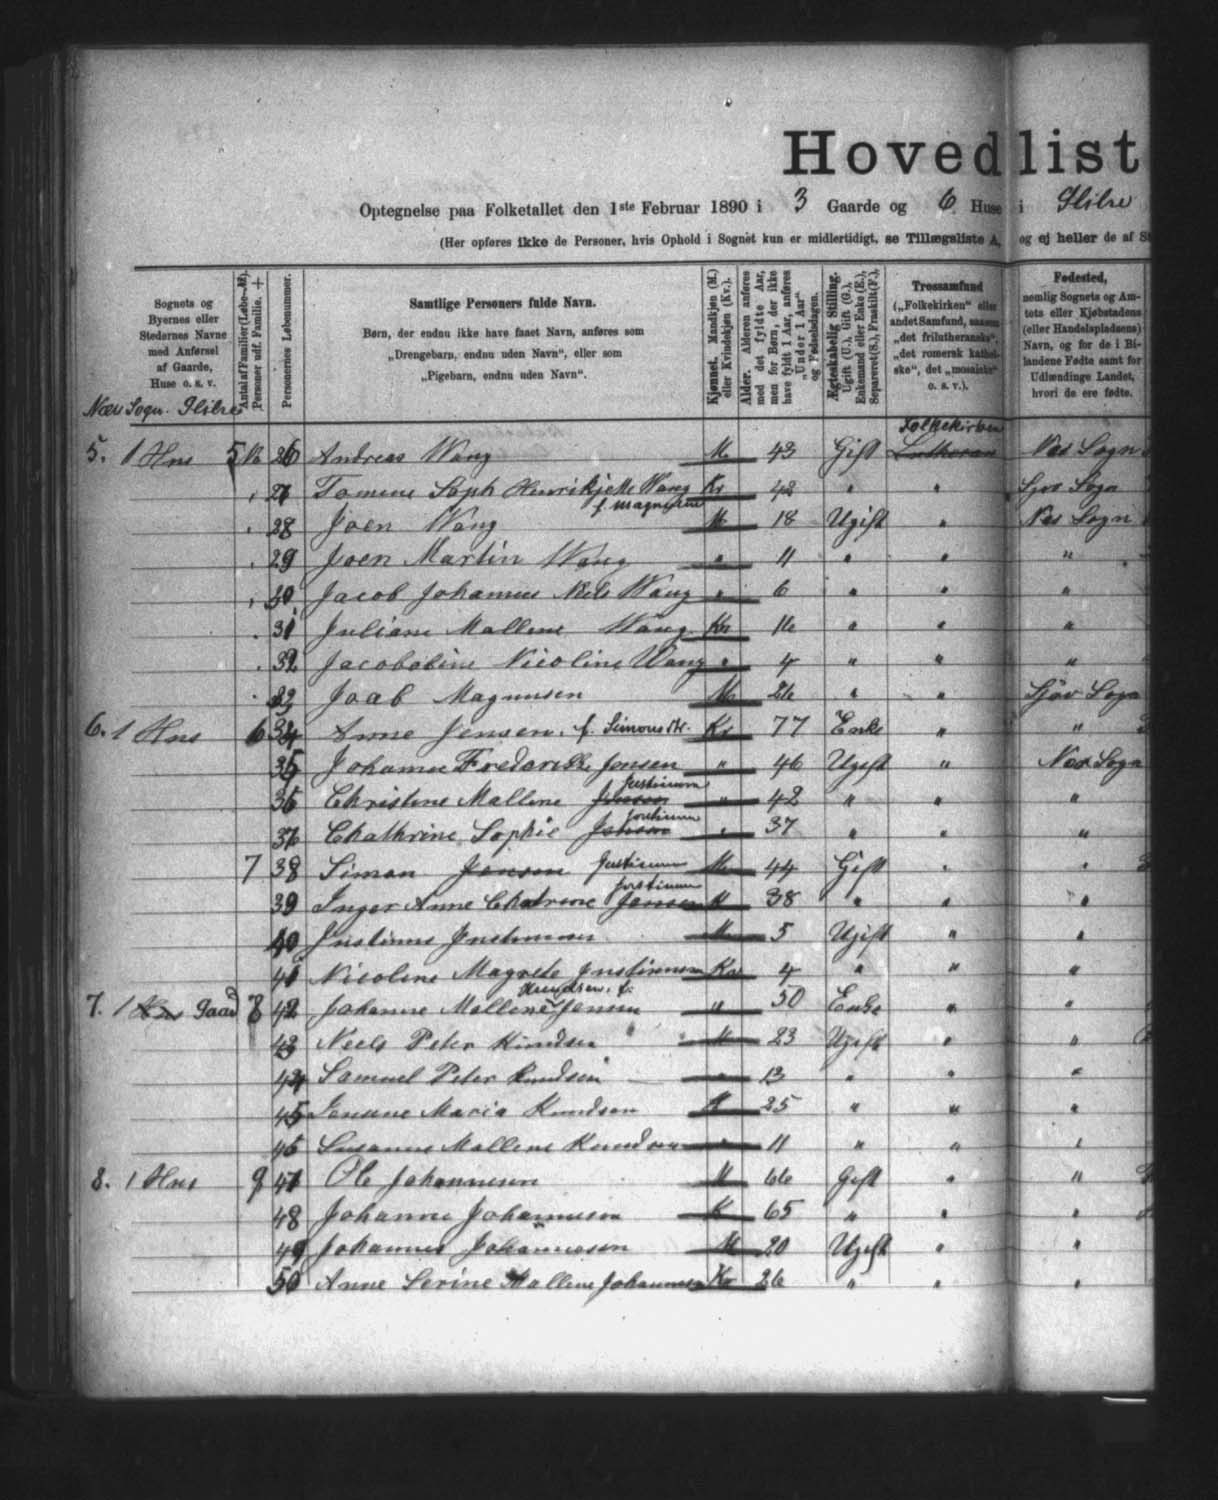 Hovedlist
Optegnelse paa Folketallet den 1ste Februar 1890 i 3 Gaarde og 6 Huse i Glibre
(Her opføres ikke de Personer, hvis Ophold i Sognet kun er midlertidigt, se Tillægsliste A, og ej heller de af St
Sognets og Byernes eller Stedernes Navne med Anførsel af Gaarde, Huse o. s. v.
Antal af Familier (Løbe-№). Personer udf. Familie. +
Personernes Løbenummer.
Samtlige Personers fulde Navn.
Børn, der endnu ikke have faaet Navn, anføres som
„Drengebarn, endnu uden Navn“, eller som
„Pigebarn, endnu uden Navn“.
Kjønnet. Mandkjøn (M.) eller Kvindekjøn (Kv.).
Alder. Alderen anføres med det fyldte Aar, men for Børn, der ikke have fyldt 1 Aar, anføres „Under 1 Aar“ og Fødselsdagen.
Ægteskabelig Stilling. Ugift (U.), Gift (G.), Enkemand eller Enke (E.), Separeret (S.), Fraskilt (F.).
Trossamfund („Folkekirken“ eller andet Samfund, saasom „det frilutheranske“, „det romersk katholske“, det „mosaiske“ o. s. v.).
Fødested, nemlig Sognets og Amtets eller Kjøbstadens (eller Handelspladsens) Navn, og for de i Bilandene Fødte samt for Udlændinge Landet, hvori de ere fødte.
Næs Sogn Glibre
Folkekirken
5. 1 Hus 5 26 Andreas Wang M 43 Gift Lutheran Næs Sogn
27 Tomine Soph Henrikjette Wang Kv 42 " " Sjov Sogn
f. Magnusen
28 Joen Wang M 18 Ugift " Næs Sogn
29 Joen Martin Wang " 11 " " "
30 Jacob Johannes Niels Wang " 6 " " "
31 Juliane Mallene Wang Kv 16 " " "
32 Jacobobine Nicoline Wang " 4 " " "
33 Joab Magnusen M 26 " " Sjov Sogn
6. 1 Hus 6 34 Anne Jensen, f. Simonsdtr. Kv 77 Enke " "
35 Johanne Frederikke Jensen " 46 Ugift " Næs Sogn
Justinusen
36 Christine Mallene Jensen " 42 " " "
Justinusen
37 Chathrine Sophie Jensen " 37 " " "
7 38 Simon Jensen Justinusen M 44 Gift " "
Justinusen
39 Inger Anne Chatrine Jensen K 38 " " "
40 Justinus Justinusen M 5 Ugift " "
41 Nicoline Magrete Justinusen Kv 4 " " "
Knudsen, f.
7. 1 Hus Gaard 8 42 Johanne Mallene Jensen " 50 Enke " "
43 Niels Peter Knudsen M 23 Ugift " "
44 Samuel Peter Knudsen " 13 " " "
45 Jensine Maria Knudsen K 25 " " "
46 Susanne Mallene Knudsen " 11 " " "
8. 1 Hus 9 47 Ole Johannesen M 66 Gift " "
48 Johanne Johannesen K 65 " " "
49 Johannes Johannesen M 20 Ugift " "
50 Anne Serine Mallene Johannesen Kv 26 " " "